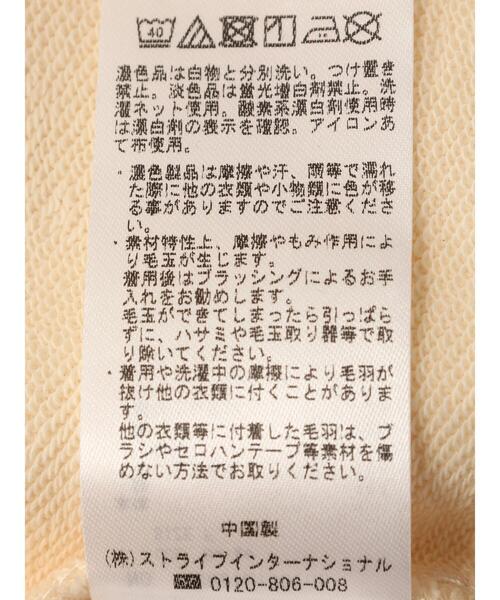 40
濃色品は白物と分別洗い。つけ置き
禁止。淡色品は蛍光増白剤禁止。洗
濯ネット使用。酸素系漂白剤使用時
は漂白剤の表示を確認。アイロンあ
て布使用。
・濃色製品は摩擦や汗、雨等で濡れ
た際に他の衣類や小物類に色が移
る事がありますのでご注意くださ
い。
・素材特性上、摩擦やもみ作用によ
り毛玉が生じます。
着用後はブラッシングによるお手
入れをお勧めします。
毛玉ができてしまったら引っぱら
ずに、ハサミや毛玉取り器等で取
り除いてください。
・着用や洗濯中の摩擦により毛羽が
抜け他の衣類に付くことがありま
す。
他の衣類等に付着した毛羽は、ブ
ラシやセロハンテープ等素材を傷
めない方法でお取りください。
中国製
(株)ストライプインターナショナル
0120-806-008